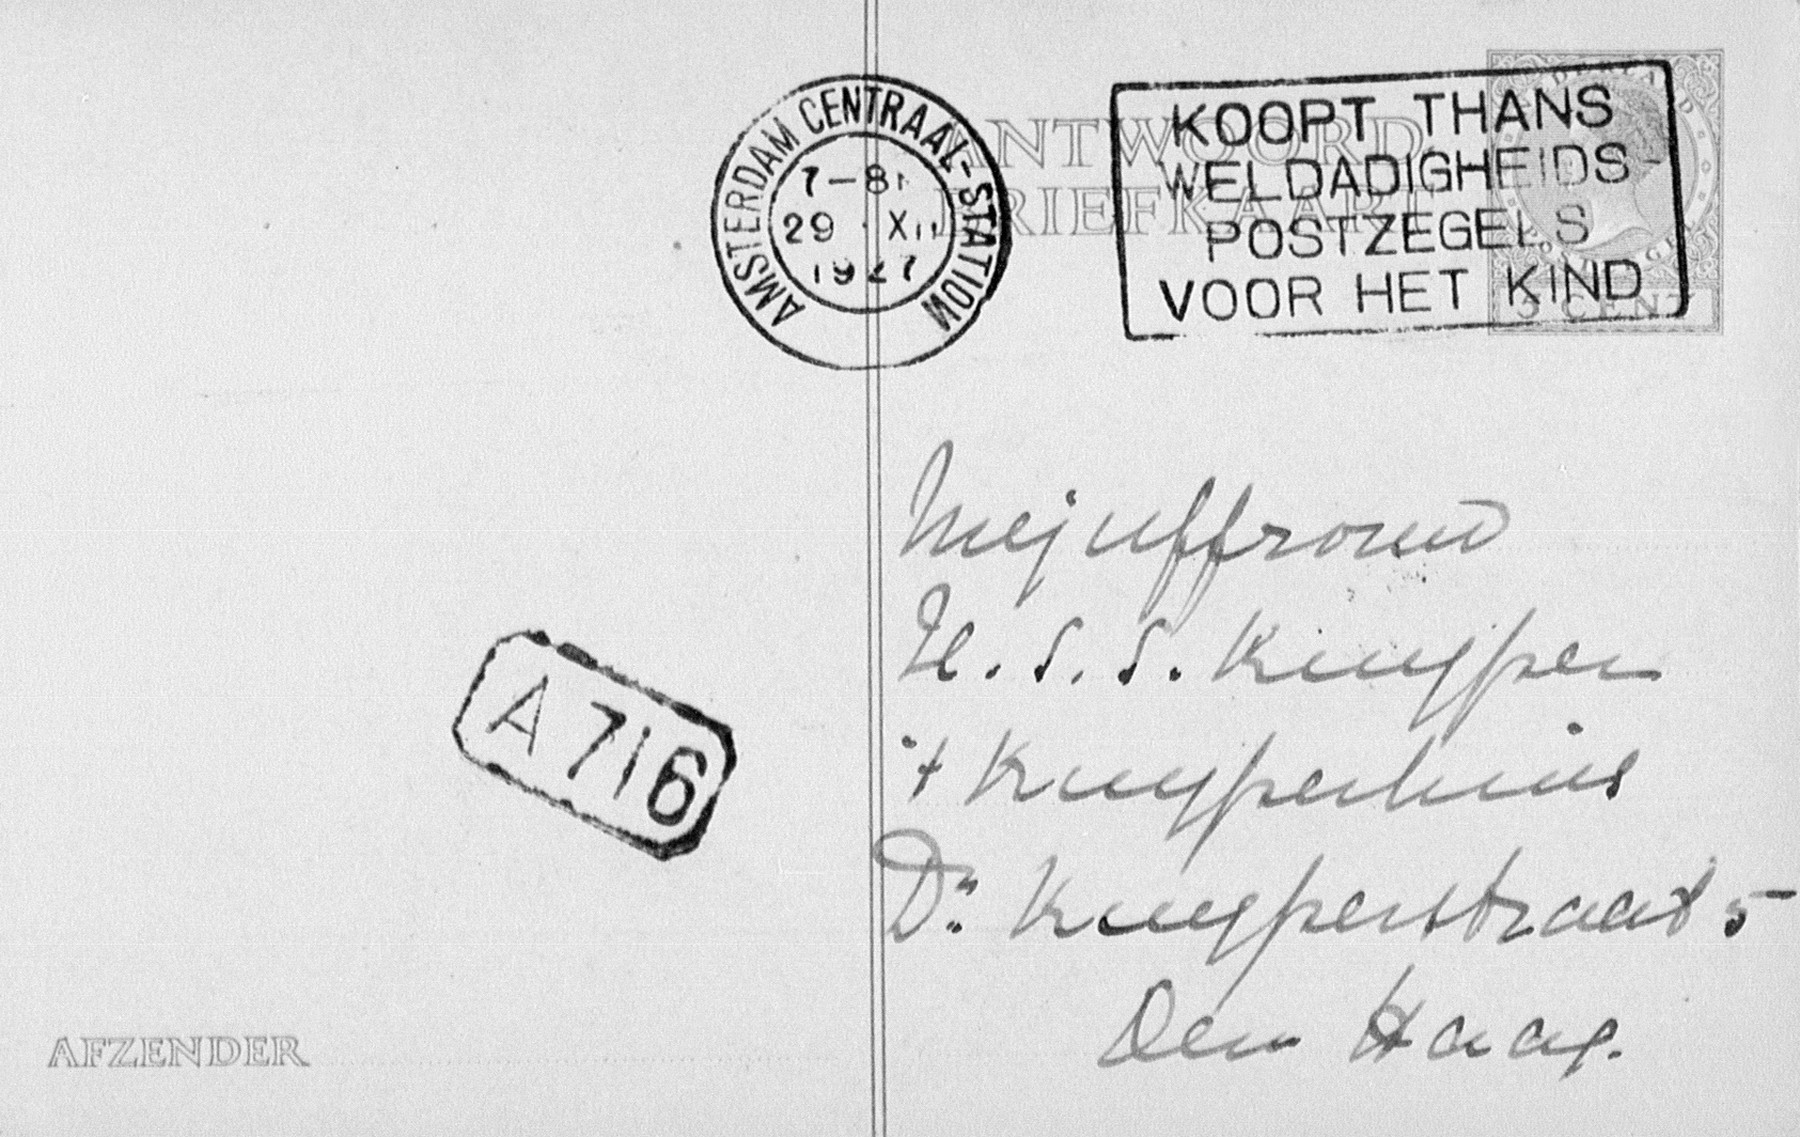 AMSTERDAM CENTRAAL-STATION
7-8
29 XII
1927
ANTWOORD
BRIEFKAART
KOOPT THANS
WELDADIGHEIDS-
POSTZEGELS
VOOR HET KIND
5 CENT
Mejuffrouw
H. S. S. Kuyper
't Kuyperhuis
Dr. Kuyperstraat 5
Den Haag.
A 716
AFZENDER